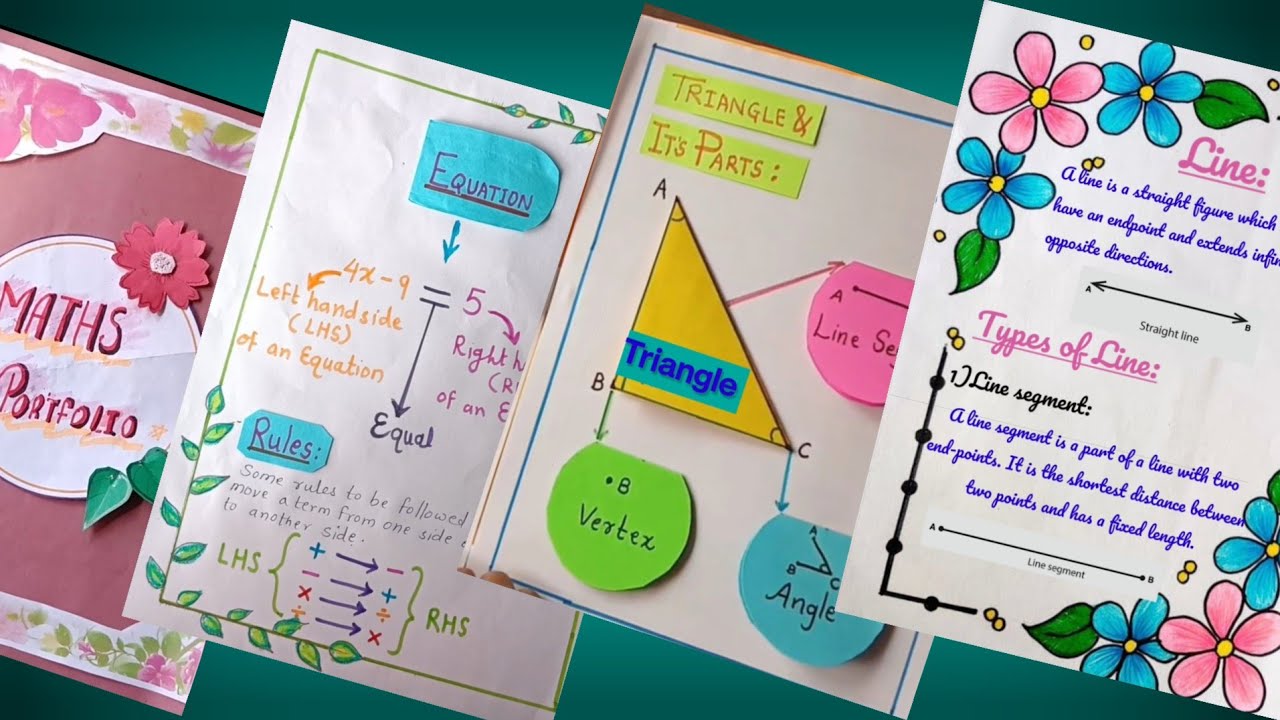 MATHS
PORTFOLIO
EQUATION
4x - 9 = 5
Left handside
(LHS)
of an Equation
Right h
(R
of an E
Equal
Rules:
Some rules to be followed
move a term from one side
to another side.
LHS
+ → -
- → +
× → ÷
÷ → ×
RHS
TRIANGLE &
IT'S PARTS:
A
B
C
Triangle
A
Line Se
•B
Vertex
A
B
C
Angle
Line:
A line is a straight figure which
have an endpoint and extends infin
opposite directions.
A
B
Straight line
Types of Line:
1) Line segment:
A line segment is a part of a line with two
end-points. It is the shortest distance between
two points and has a fixed length.
A
B
Line segment